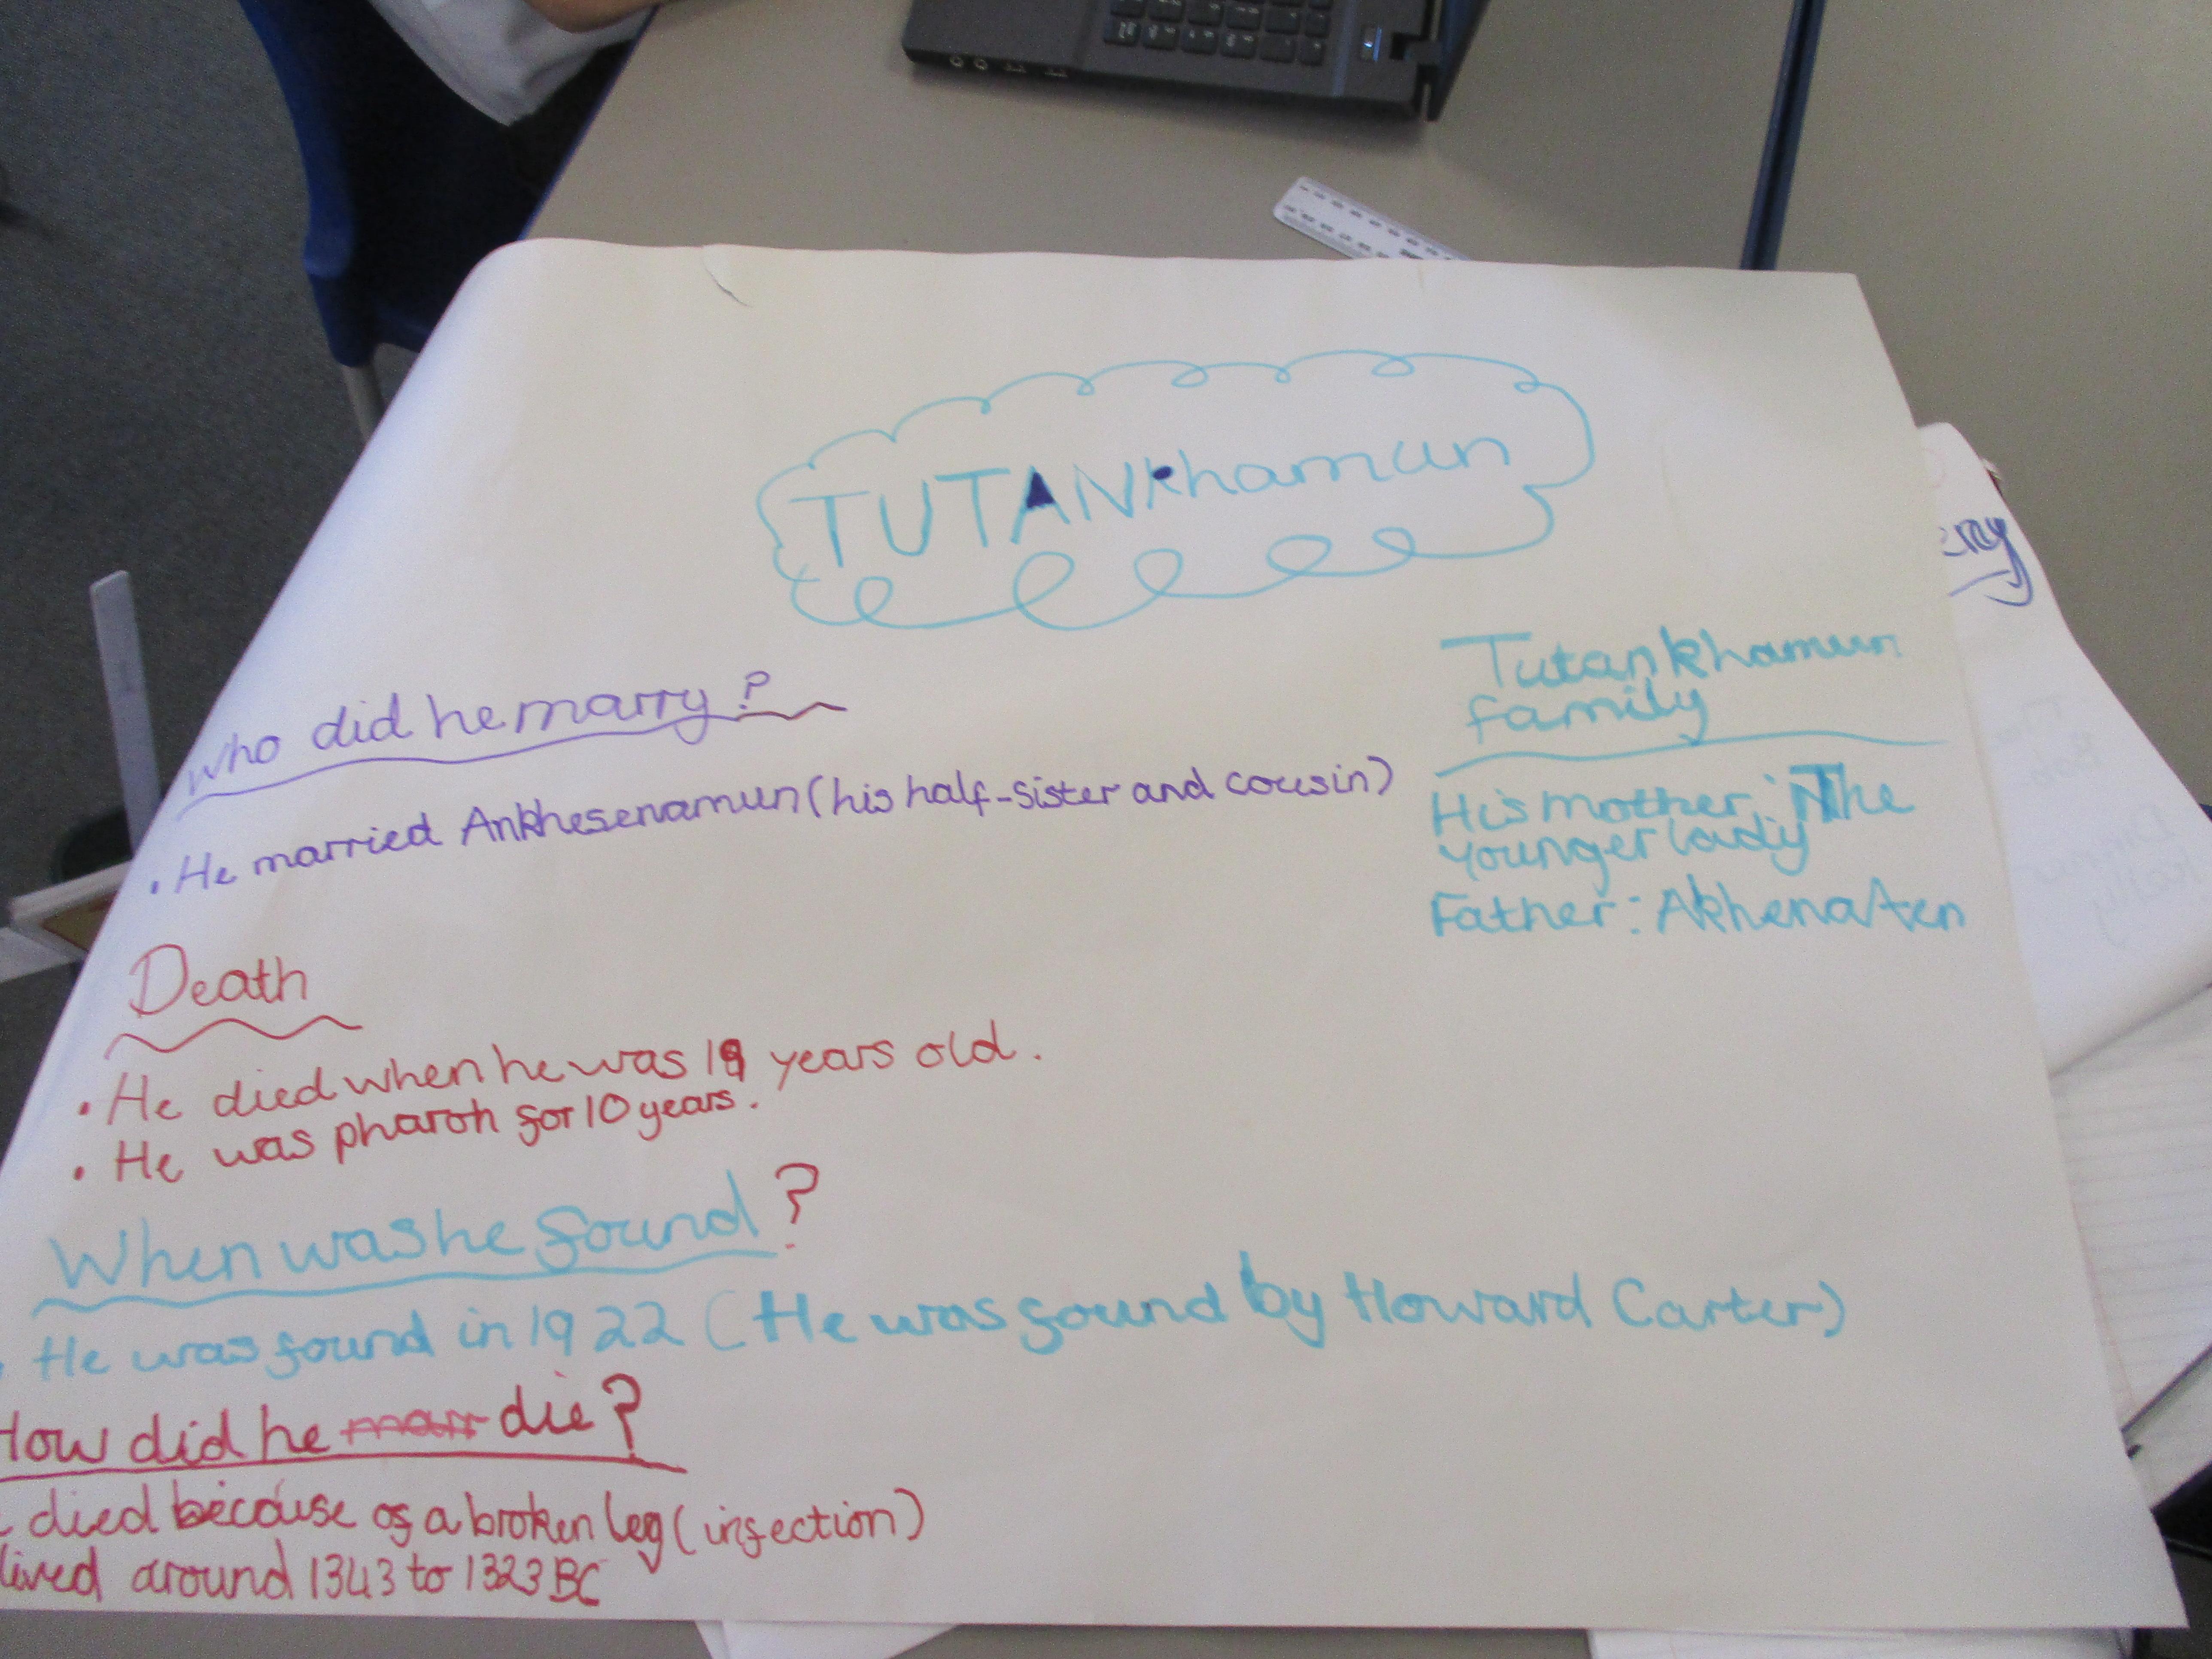 TUTANkhamun
Who did he marry?
. He married Ankhesenamun (his half-sister and cousin)
Tutankhamun
family
His mother: The
Younger lady
Father: Akhenaten
Death
. He died when he was 19 years old.
. He was pharoh for 10 years.
When was he found?
. He was found in 1922 (He was found by Howard Carter)
How did he marr die?
died because of a broken leg (infection)
lived around 1343 to 1323 BC